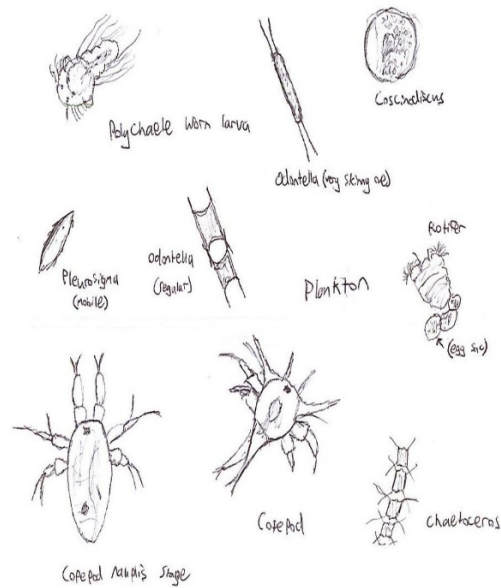 Polychaete worm larva
Odontella (very skinny one)
Coscinodiscus
Pleurosigma
(mobile)
Odontella
(regular)
Plankton
Rotifer
(egg sac)
Copepod nauplis stage
Copepod
Chaetoceros